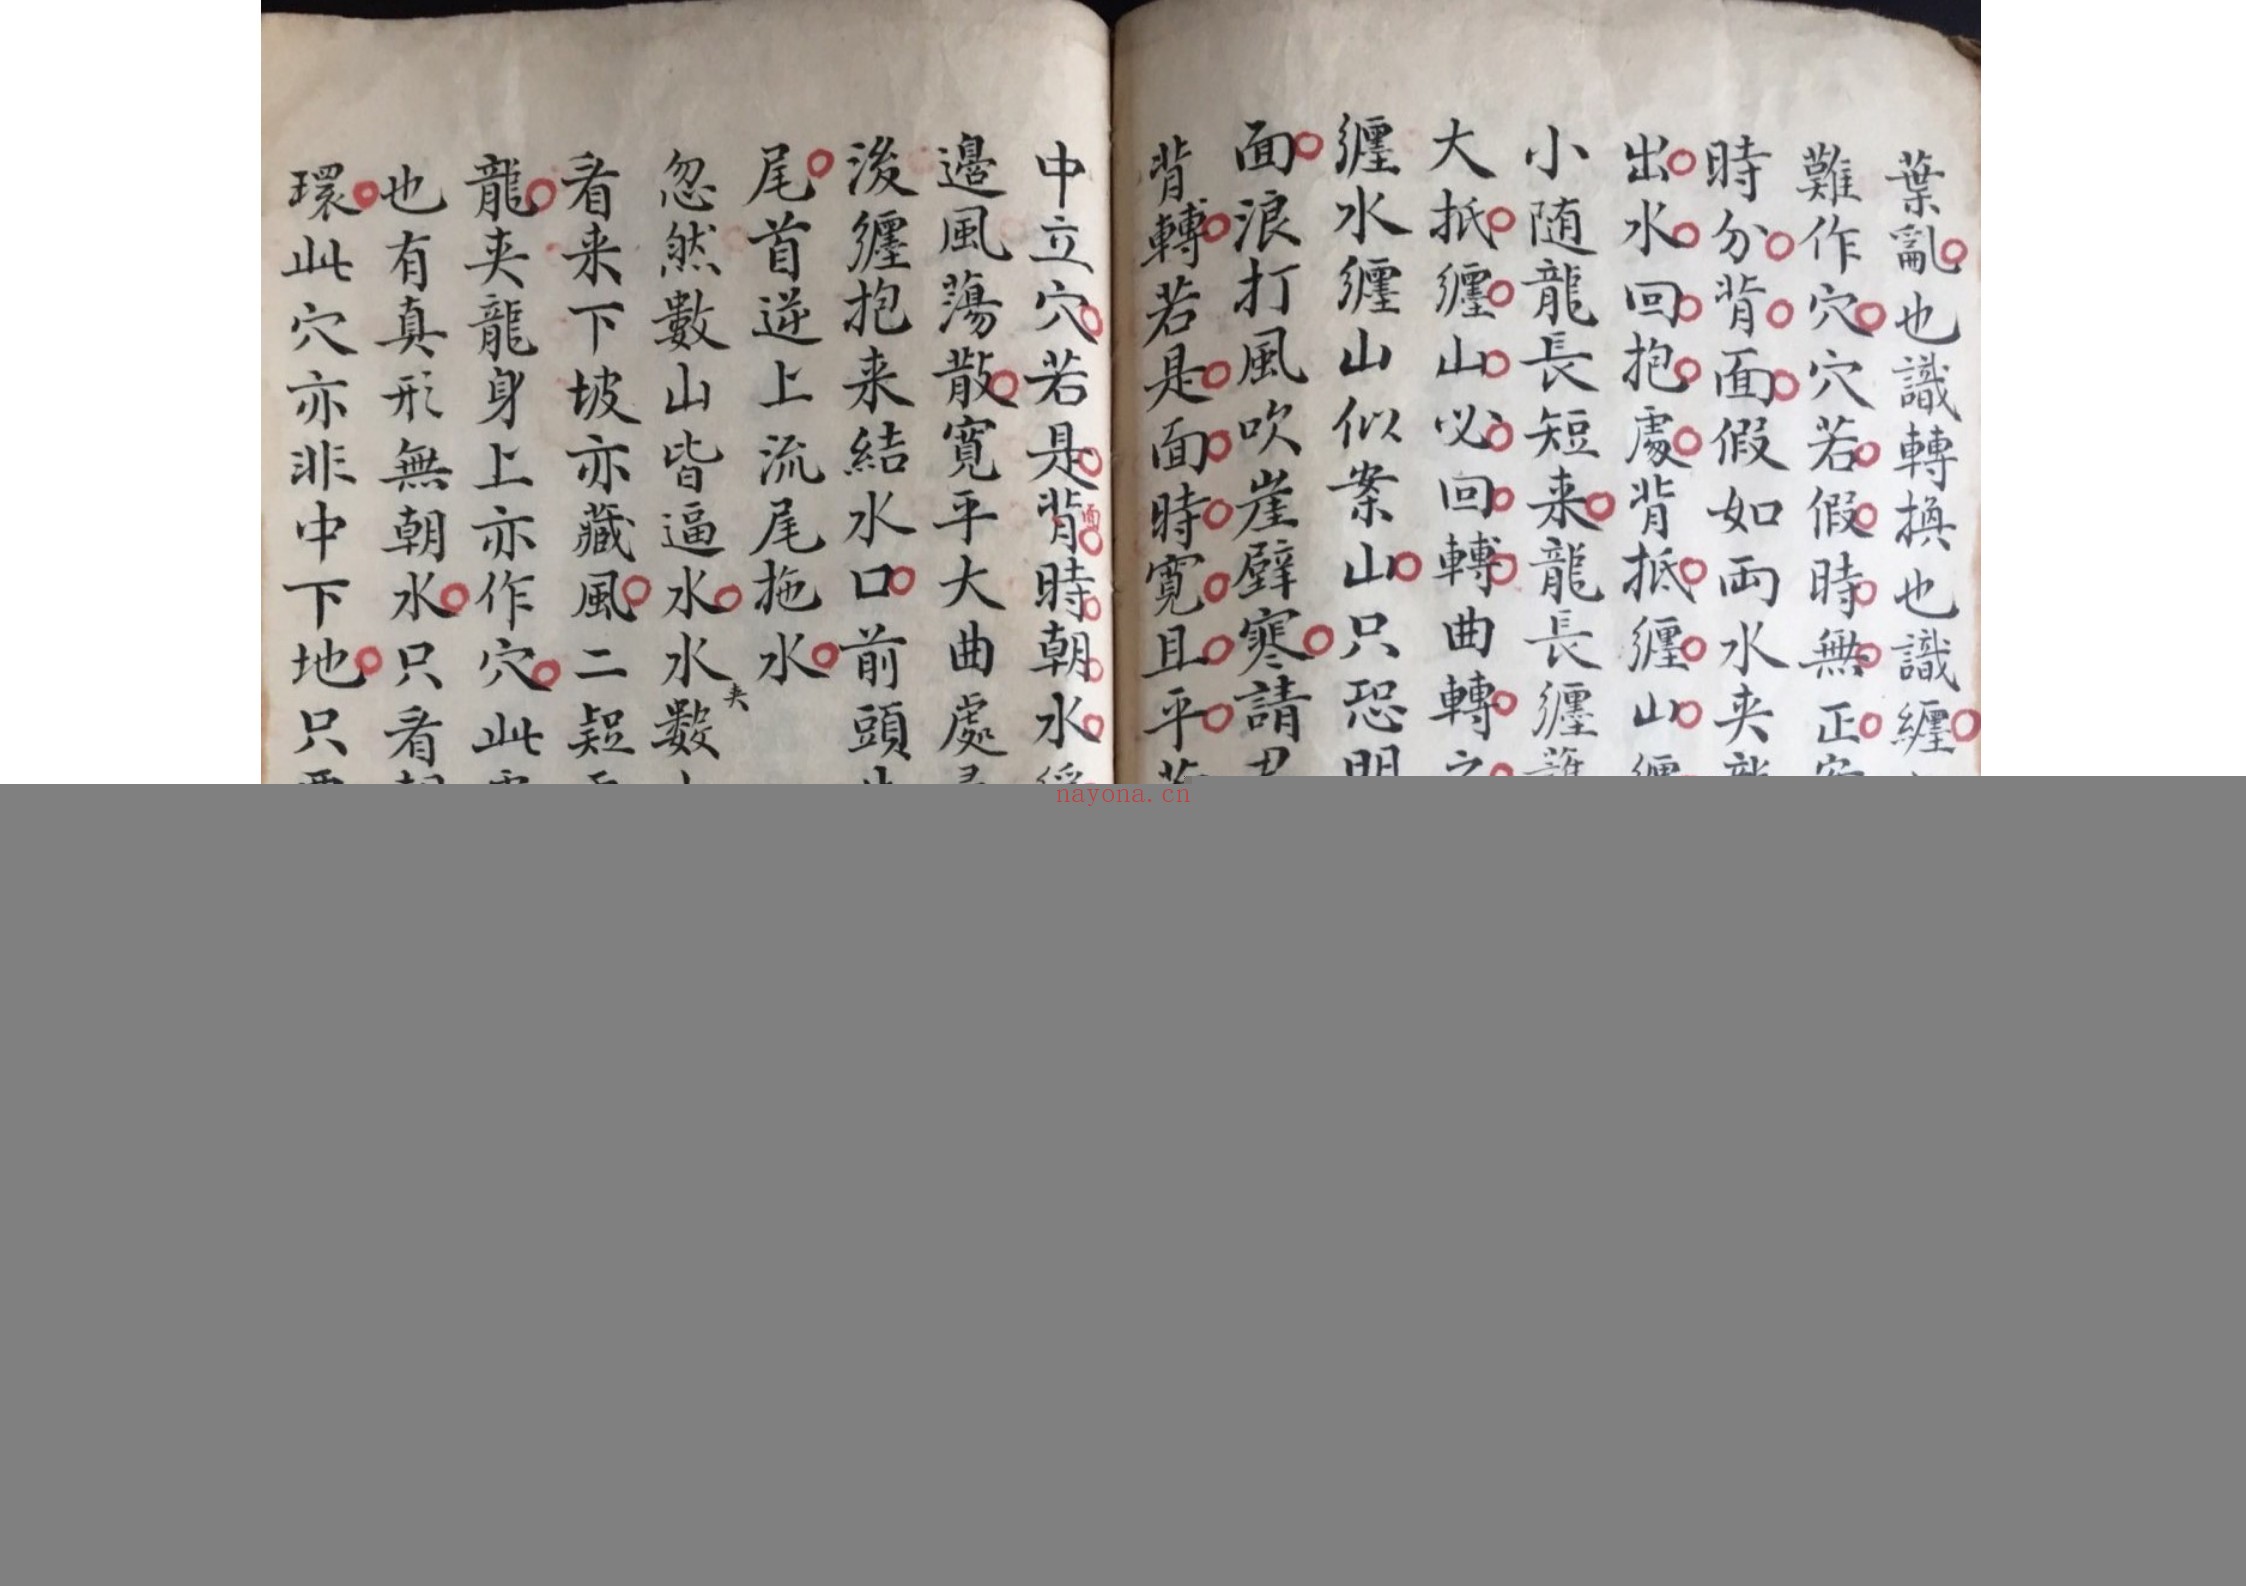 葉亂也識轉換也識纏
難作穴穴若假時無正
時分背面假如両水夹
出水回抱處背抵纏山
小随龍長短来龍長纏
大抵纏山必回轉曲轉
纏水纏山似案山只恐
面浪打風吹崖壁寒請
背轉若是面時寛且平
中立穴若是背時朝水
面
邊風蕩散寛平大曲處
後纏抱来結水口前頭
尾首逆上流尾拖水
忽然數山皆逼水水數
夹
看来下坡亦藏風二疑
龍夹龍身上亦作穴此
也有真形無朝水只看
環此穴亦非中下地只
nayona.cn